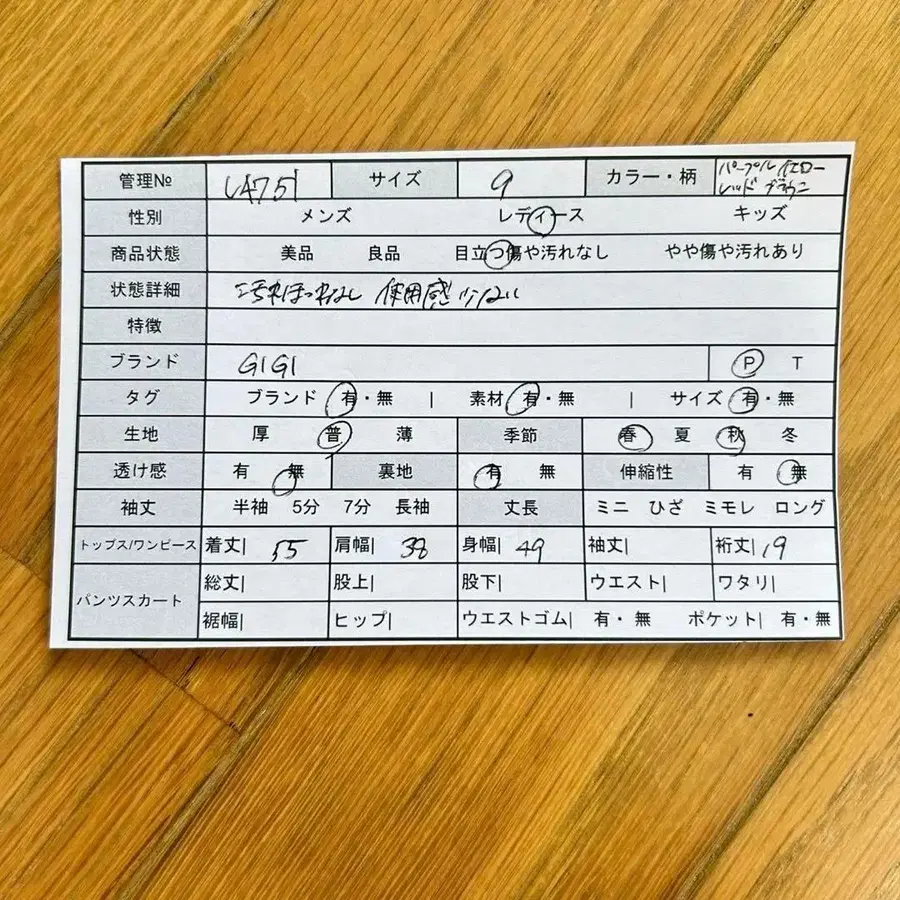 管理№ L4751 サイズ 9 カラー・柄 パープル イエロー レッド ブラウン
性別 メンズ レディース キッズ
商品状態 美品 良品 目立つ傷や汚れなし やや傷や汚れあり
状態詳細 汚れほつれなし 使用感少ない
特徴
ブランド GIGI P T
タグ ブランド 有・無 | 素材 有・無 | サイズ 有・無
生地 厚 普 薄 季節 春 夏 秋 冬
透け感 有 無 裏地 有 無 伸縮性 有 無
袖丈 半袖 5分 7分 長袖 丈長 ミニ ひざ ミモレ ロング
トップス/ワンピース 着丈| 55 肩幅| 38 身幅| 49 袖丈| 裄丈| 19
パンツスカート 総丈| 股上| 股下| ウエスト| ワタリ|
裾幅| ヒップ| ウエストゴム| 有・無 ポケット| 有・無